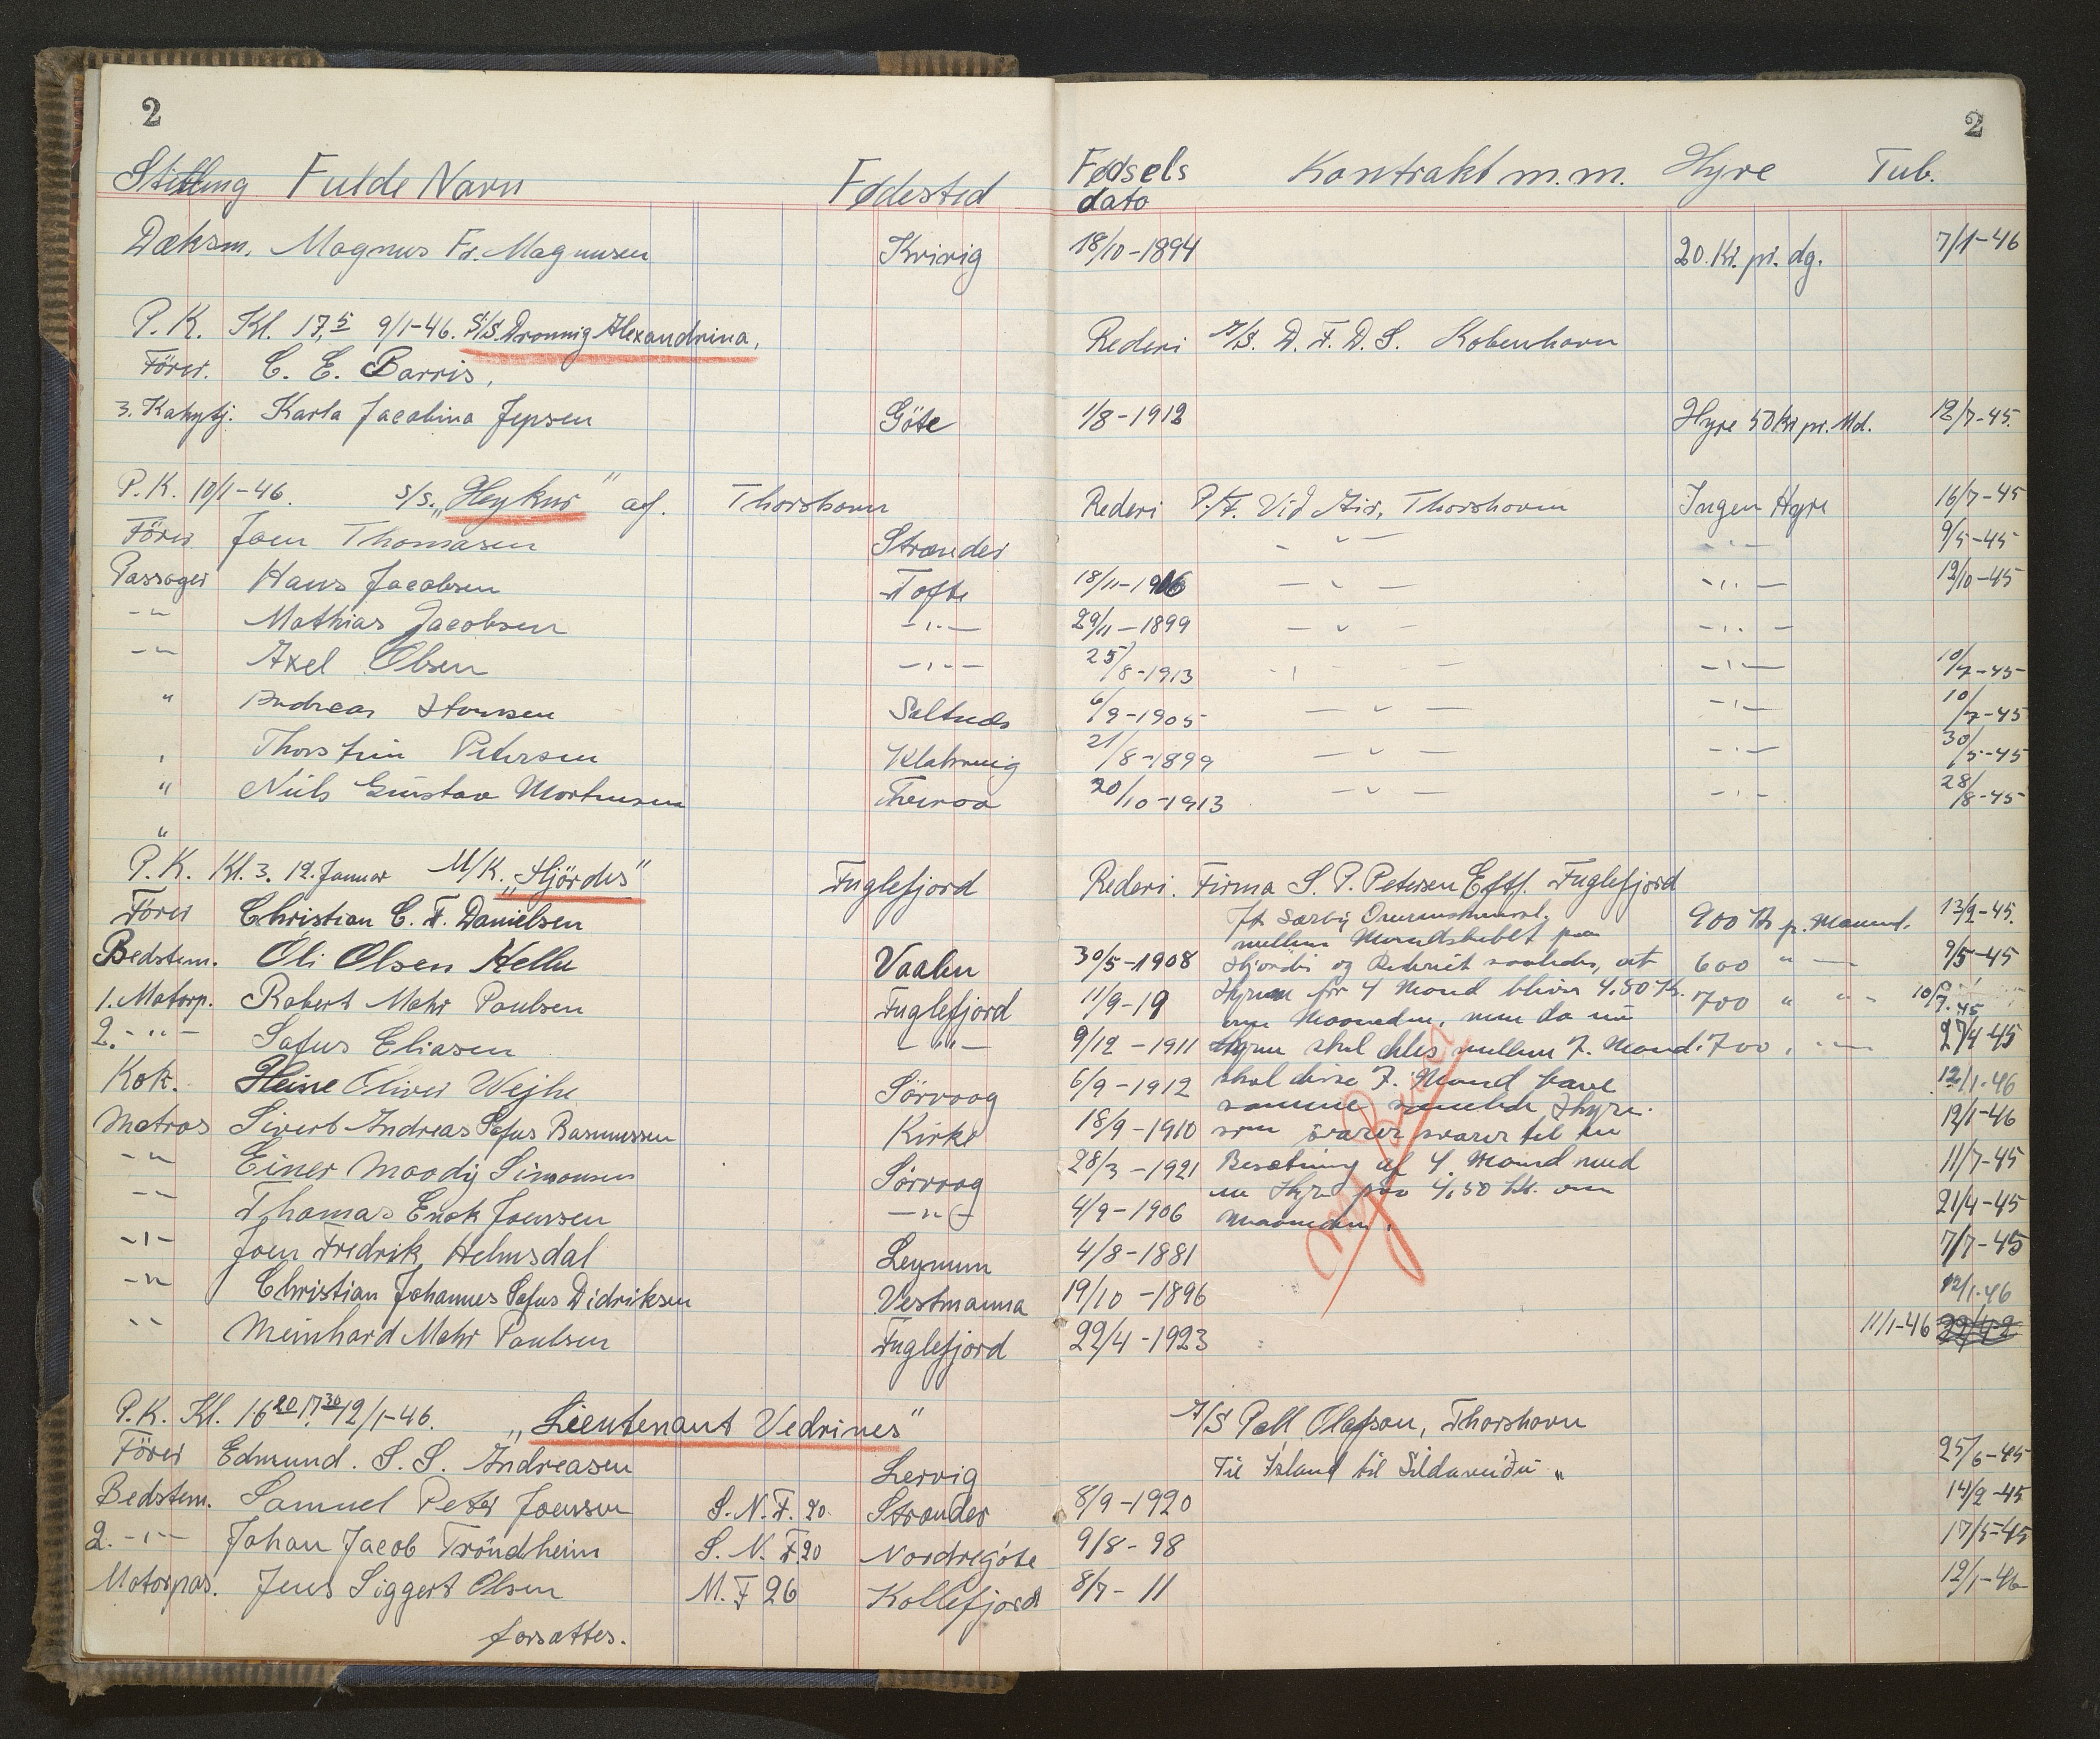 2 2
Stilling Fulde Navn Fødested Fødsels dato Kontrakt m.m. Hyre Tub.
Dæksm. Magnus Fr. Magnusen Kvivig 18/10-1894 20 Kr. pr. dg. 7/1-46
P. K. Kl. 17,5 9/1-46. S/S. Dronnig Alexandrina, Rederi A/S. D. F. D. S. København
Förer. C. E. Barris,
3. Kahytj. Karla Jacobina Jepsen Göte 1/8-1912 Hyre 50 Kr pr. Md. 12/7-45.
P. K. 10/1-46. S/S. „Heykur" af. Thorshavn Rederi P/F. Vid Air, Thorshavn Ingen Hyre 16/7-45
Förer Joen Thomasen Strænder - " - - " - 9/5-45
Passager Hans Jacobsen Tofte 18/11-1906 - " - - " - 12/10-45
- " Mathias Jacobsen - " - 29/11-1899 - " - - " -
- " Axel Olsen - " - 25/8-1913 - " - - " - 10/7-45
" Andreas Hansen Saltnes 6/9-1905 - " - - " - 10/7-45
" Thorstein Petersen Klaksvig 21/8-1899 - " - - " - 30/5-45
" Niels Gustav Mortensen Tveraa 20/10-1913 - " - - " - 28/8-45
"
P. K. Kl. 3. 12. Januar M/K. „Hjördis" Fuglefjord Rederi. Firma S. P. Petersen Eftf. Fuglefjord
Förer Christian C. F. Danielsen 900 Kr p. Maaned. 13/2-45.
Bedstem. Óli Olsen Hellu Vaalen 30/5-1908 600 " - 9/5-45
1. Motorp. Robert Mohr Poulsen Fuglefjord 11/9-19 700 " " - 10/7.45
2. - " - Sofus Eliasen - " - 9/12-1911 700 " - 27/4-45
Kok. Heine Oliver Wejhe Sörvaag 6/9-1912 12/1-46
Matros Sivert Andreas Sofus Rasmussen Kirke 18/9-1910 12/1-46
- " Einer Moody Simonsen Sörvaag 28/3-1921 11/7-45
- " Thomas Enok Joensen - " - 4/9-1906 21/4-45
- " - Joen Fredrik Helmsdal Leynum 4/8-1881 7/7-45
- " Christian Johannes Sofus Didriksen Vestmanna 19/10-1896 12/1-46
" Meinhard Mohr Poulsen Fuglefjord 22/4-1923 11/1-46
mellem Mandskabet paa
Hjördis og Rederiet saaledes, at
Hyren for 4 Mand bliver 4.50 Kr.
om Maaneden, men da
Hyren skal deles mellem 7. Mand.
skal disse 7. Mand have
samme Hyre.
som svarer svarer til en
Besætning af 4. Mand med
en Hyre paa 4,50 Kr. om
Maaneden.
P. K. Kl. 16 20 17 30 12/1-46. „Lieutenant Vedrines" A/S Poll Olafson, Thorshavn
Förer Edmund. S. S. Andreasen Lervig Til Ísland til Sildaveiðu " 25/6-45
Bedstem. Samuel Peter Joensen S. N. F. 20. Strander 8/9-1920 14/2-45
2. - " - Johan Jacob Tröndheim S. N. F. 20 Nordregöte 9/8-98 17/5-45
Motorpas. Jens Siggert Olsen M. F 26 Kollefjord 8/7-11 12/1-46
forsættes.